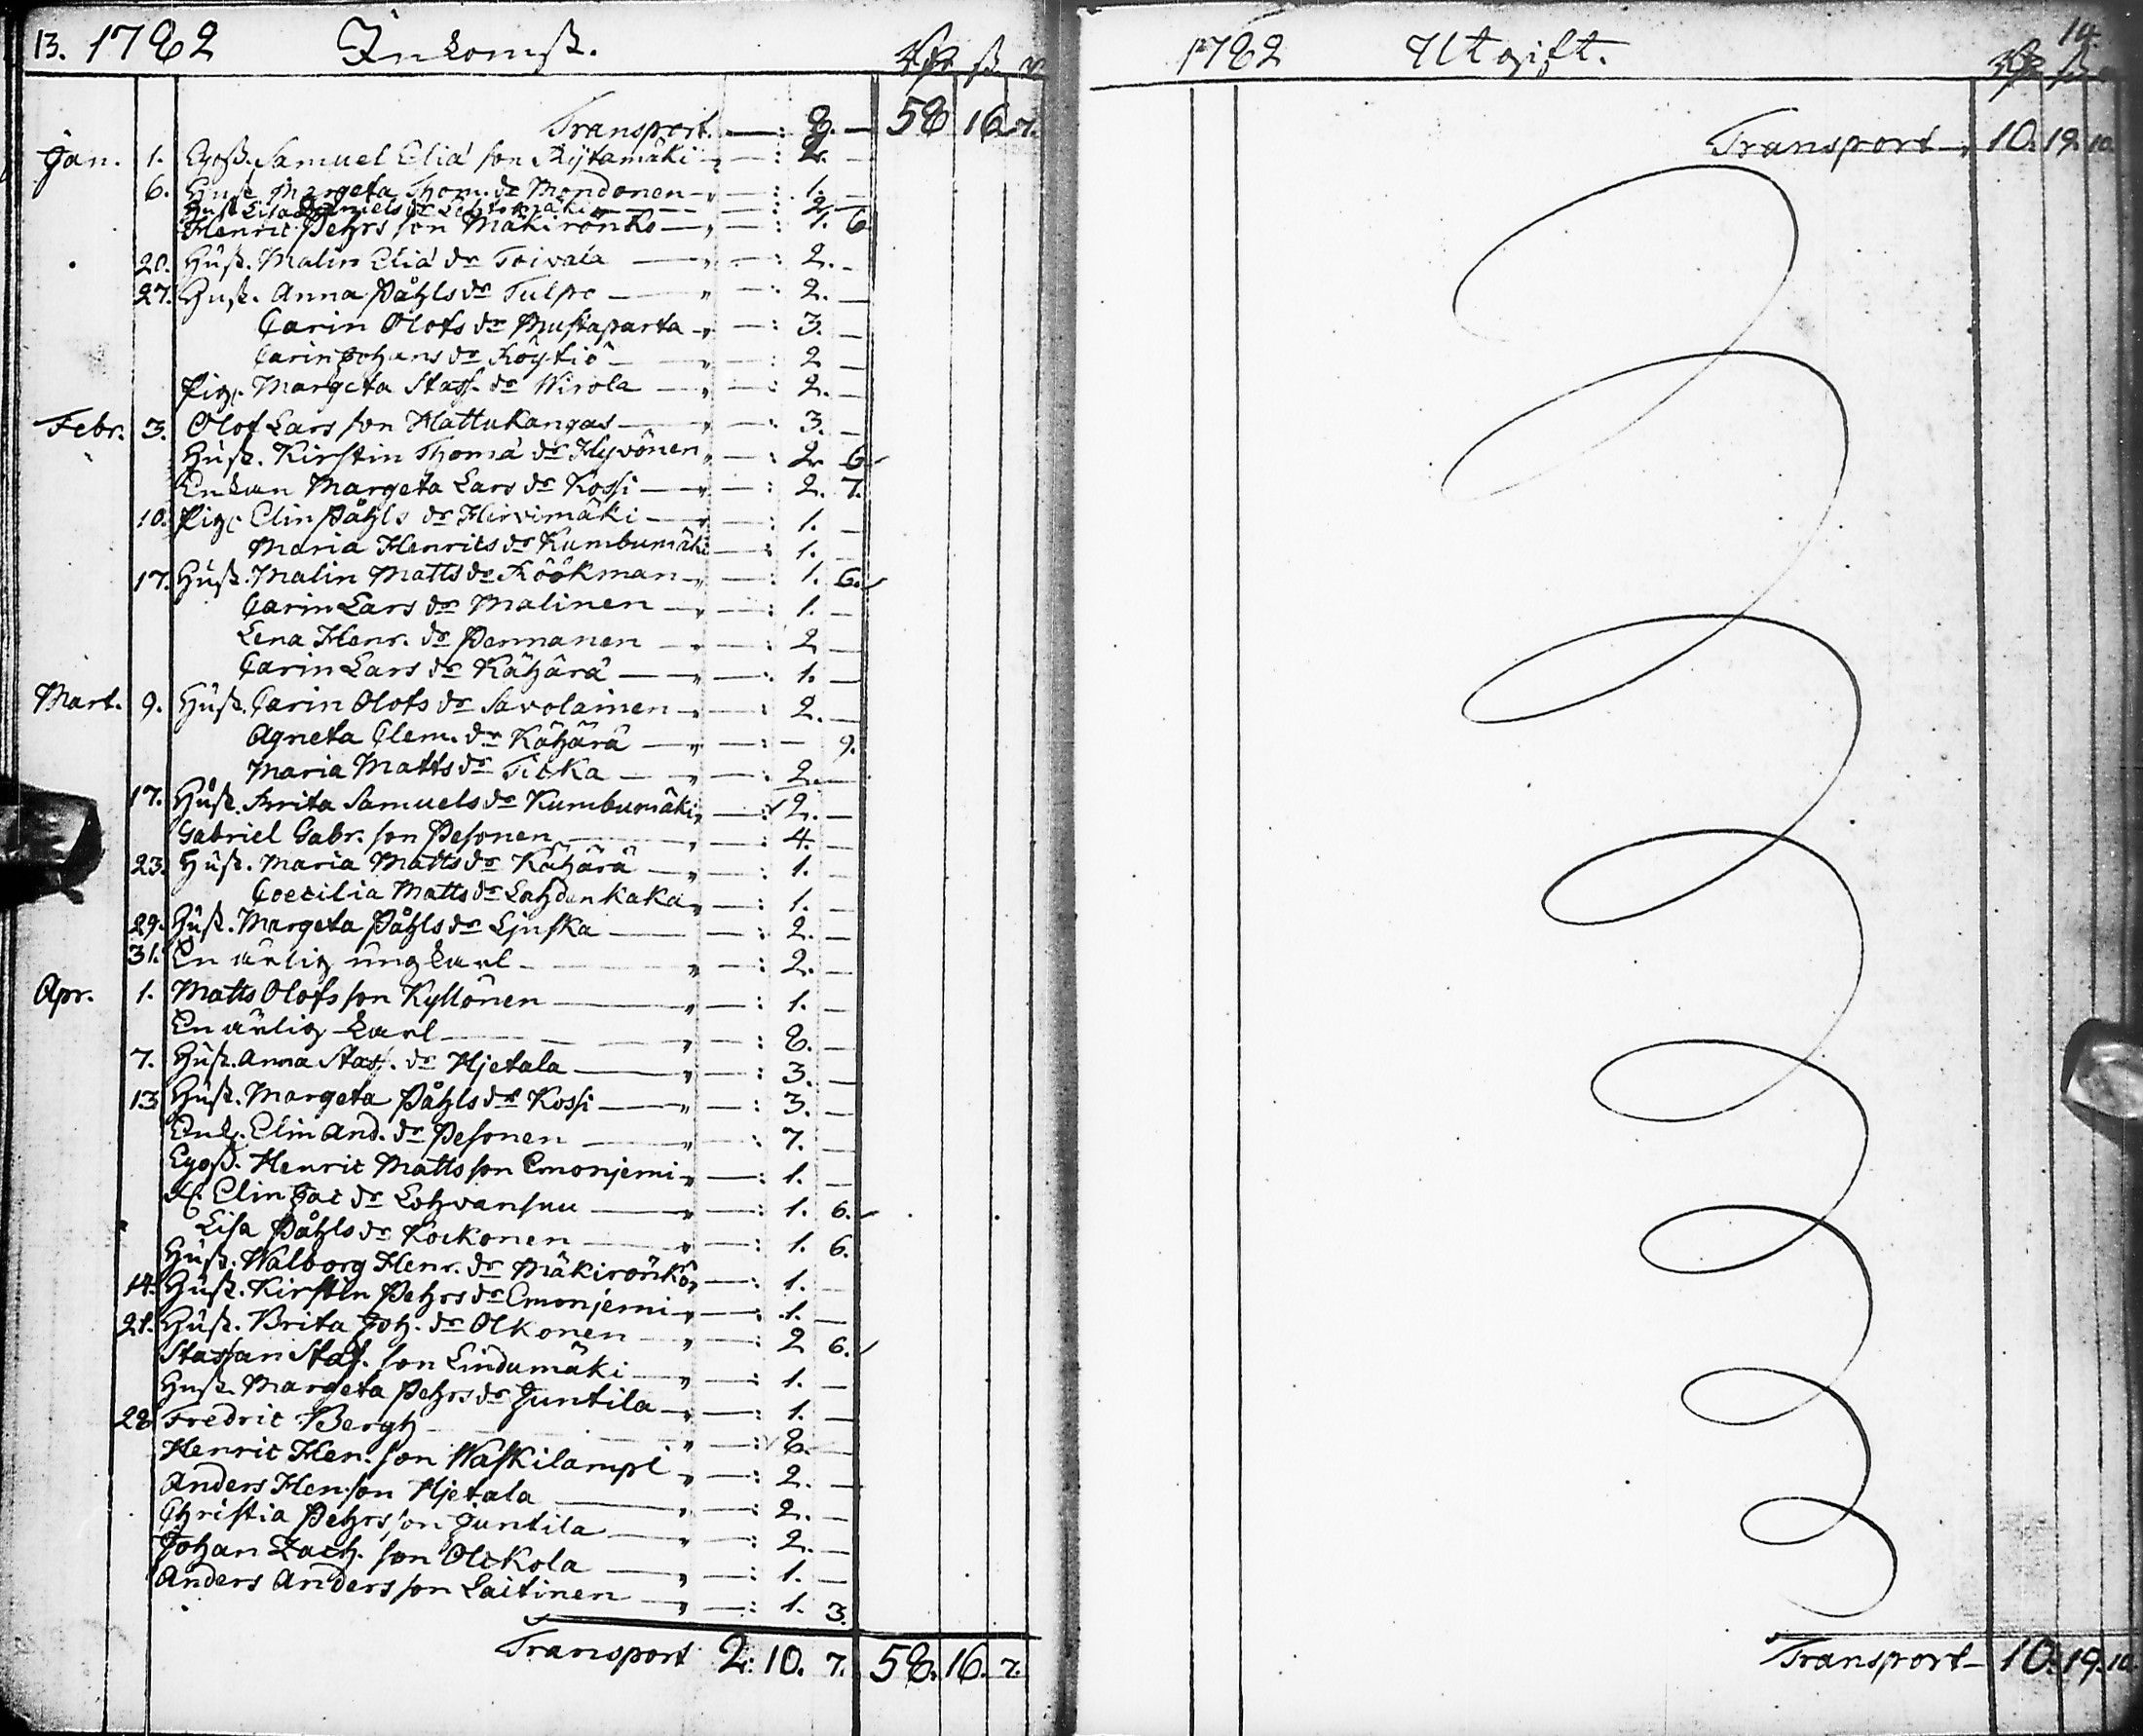 13. 1782 Inkomst. Rdr ß r
Transport. — : 8. — 58 16. 7.
Jan. 1. Egoss. Samuel Eliæ son Kytamäki — : 2. —
6. Hust. Margeta Thom. dr Mondonen — : 1. —
Hust Lisa Daniels dr Lehtomäki — : 2. —
Henric Pehrs son Mäkirönkö — : 1. 6
20. Hust. Malin Eliæ dr Toivala — : 2. —
27. Hust. Anna Påhls dr Tulpo — : 2. —
Carin Olofs dr Mustaparta — : 3. —
Carin Johans dr Köytiö — : 2 —
Pig. Margeta Staff. dr Wirola — : 2. —
Febr. 3. Olof Lars son Hattukangas — : 3. —
Hust. Kirstin Thomæ dr Hyvönen — : 2. 6
Enkan Margeta Lars dr Kossi — : 2. 7.
10. Pig. Elin Påhls dr Hirvimäki — : 1. —
Maria Henrics dr Kumbumäki — : 1. —
17. Hust. Malin Matts dr Köökman — : 1. 6.
Carin Lars dr Malinen — : 1. —
Lena Henr. dr Pennanen — : 2 —
Carin Lars dr Kähärä — : 1. —
Mart. 9. Hust. Carin Olofs dr Savolainen — : 2. —
Agneta Clem. dr Kähärä — : — 9.
Maria Matts dr Ticka — : 2. —
17. Hust. Brita Samuels dr Kumbumäki — : 2. —
Gabriel Gabr. son Pesonen — : 4. —
23. Hust. Maria Matts dr Kähärä — : 1. —
Coecilia Matts dr Lahdenkaka — : 1. —
29. Hust. Margeta Påhls dr Ljuska — : 2. —
31. En ärlig ung karl — : 2. —
Apr. 1. Matts Olofs son Kyllönen — : 1. —
En ärlig karl — : 8. —
7. Hust. Anna Staf. dr Hjetala — : 3. —
13 Hust. Margeta Påhls dr Kossi — : 3. —
Enk. Elin And. dr Pesonen — : 7. —
Egoss. Henric Matts son Emonjemi — : 1. —
Elin Jac dr Lohvansuu — : 1. 6.
Lisa Påhls dr Kockonen — : 1. 6.
Hust. Walborg Henr. dr Mäkirönkö — : 1. —
14. Hust. Kirstin Pehrs dr Emonjemi — : 1. —
21. Hust. Brita Joh. dr Olkonen — : 2 6.
Staffan Staf. son Lindumäki — : 1. —
Hust. Margeta Pehrs dr Juntila — : 1. —
28 Fredric Bergh — : 8. —
Henric Hen. son Waskilampi — : 2. —
Anders Hen. son Hjetala — : 2. —
Christia Pehrs son Juntila — : 2. —
Johan Zach. son Olckola — : 1. —
Anders Anders son Laitinen — : 1. 3.
Transport 2: 10. 7. 58. 16. 7.
1782 Utgift. 14.
Rdr ß
Transport — 10. 19. 10
Transport — 10. 19. 10